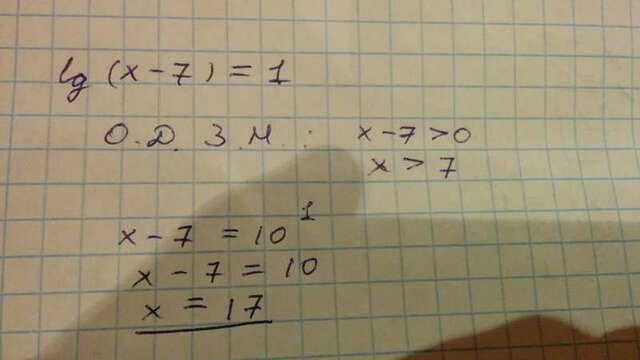 lg (x - 7) = 1
О.Д. З.Н. : x - 7 > 0
x > 7
x - 7 = 10¹
x - 7 = 10
x = 17